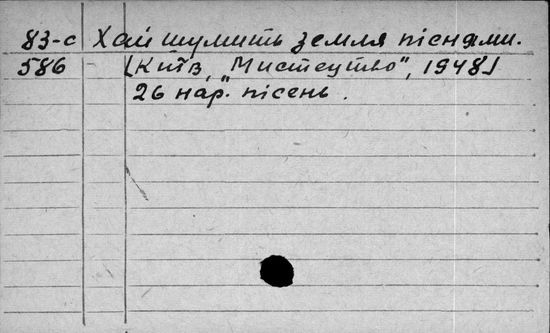 83-с Хай шумить земля піснями.
586 [Київ, „Мистецтво", 1948]
26 нар. пісень.